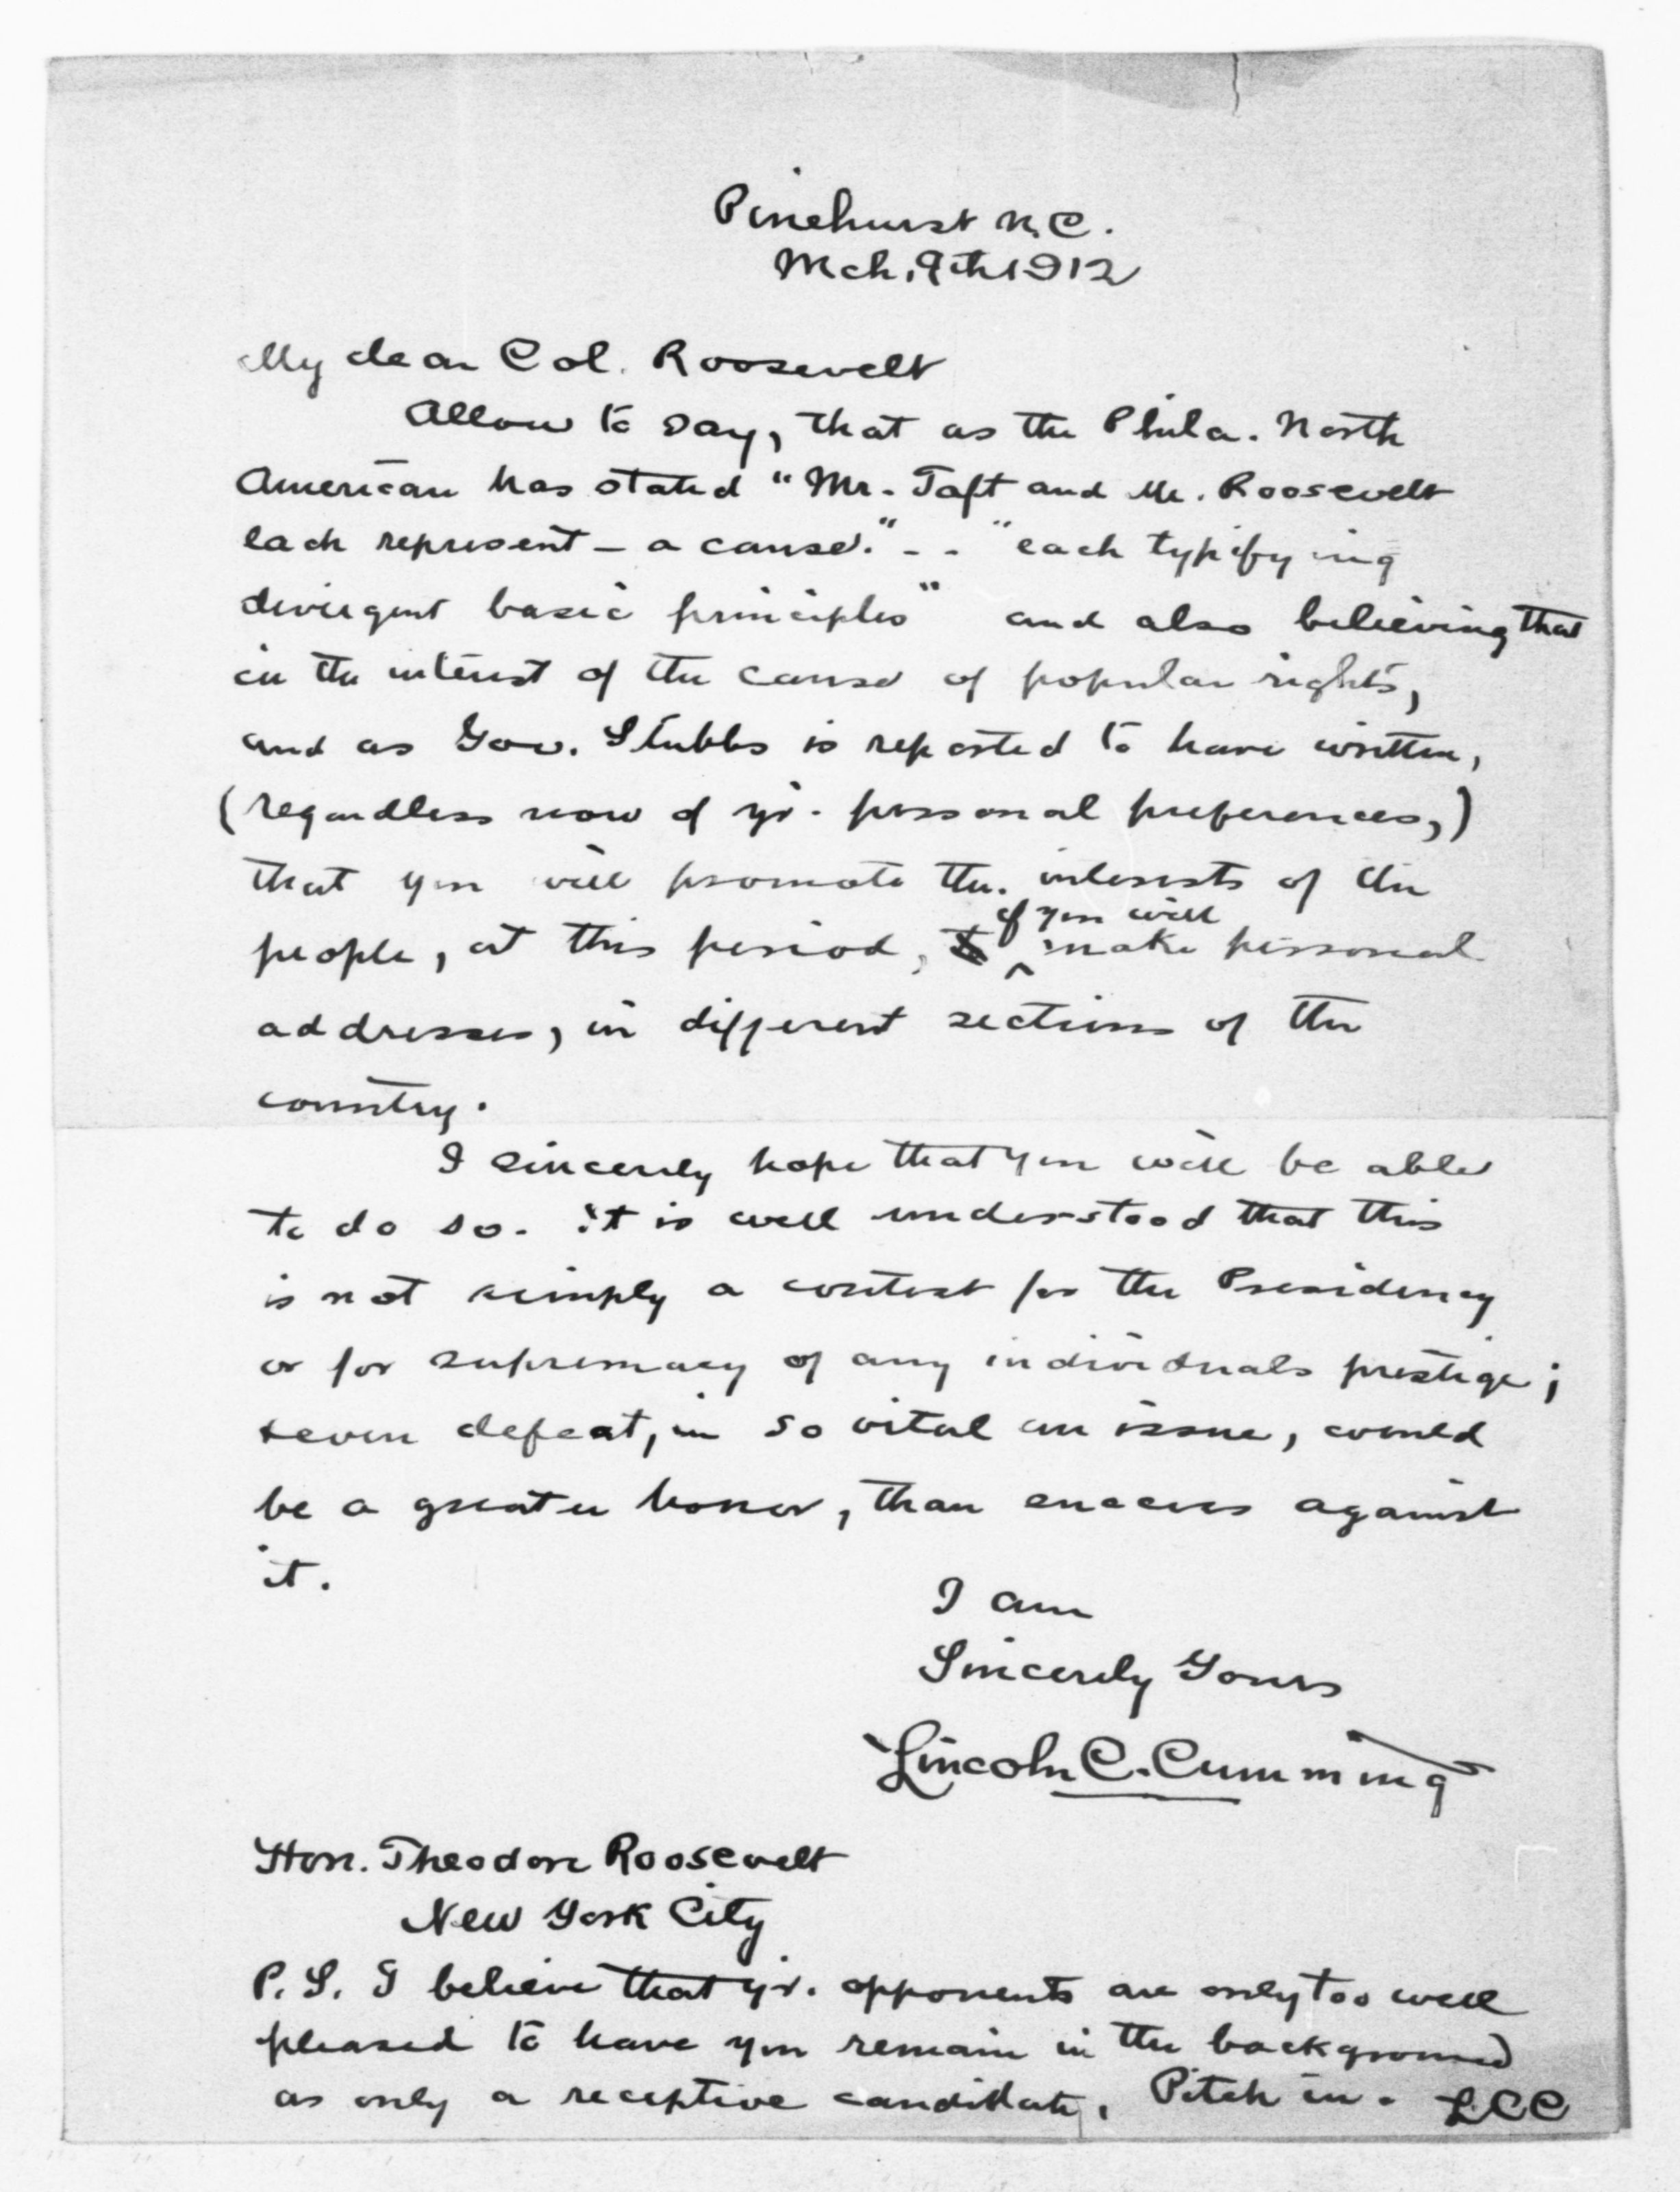 Pinehurst N.C.
Mch. 9th 1912
My dear Col. Roosevelt
Allow to say, that as the Phila. North
American has stated "Mr. Taft and Mr. Roosevelt
each represent – a cause." - - "each typifying
divergent basic principles" and also believing that
in the interest of the cause of popular rights,
and as Gov. Stubbs is reported to have written,
(regardless now of yr. personal preferences,)
that you will promote the interests of the
people, at this period, if you will make personal
addresses, in different sections of the
country.
I sincerely hope that you will be able
to do so. it is well understood that this
is not simply a contest for the Presidency
or for supremacy of any individuals prestige;
& even defeat, in so vital an issue, would
be a greater honor, than success against
it.
I am
Sincerely Yours
Lincoln C. Cumming
Hon. Theodore Roosevelt
New York City
P.S. I believe that yr. opponents are only too well
pleased to have you remain in the background
as only a receptive candidate. Pitch in. LCC